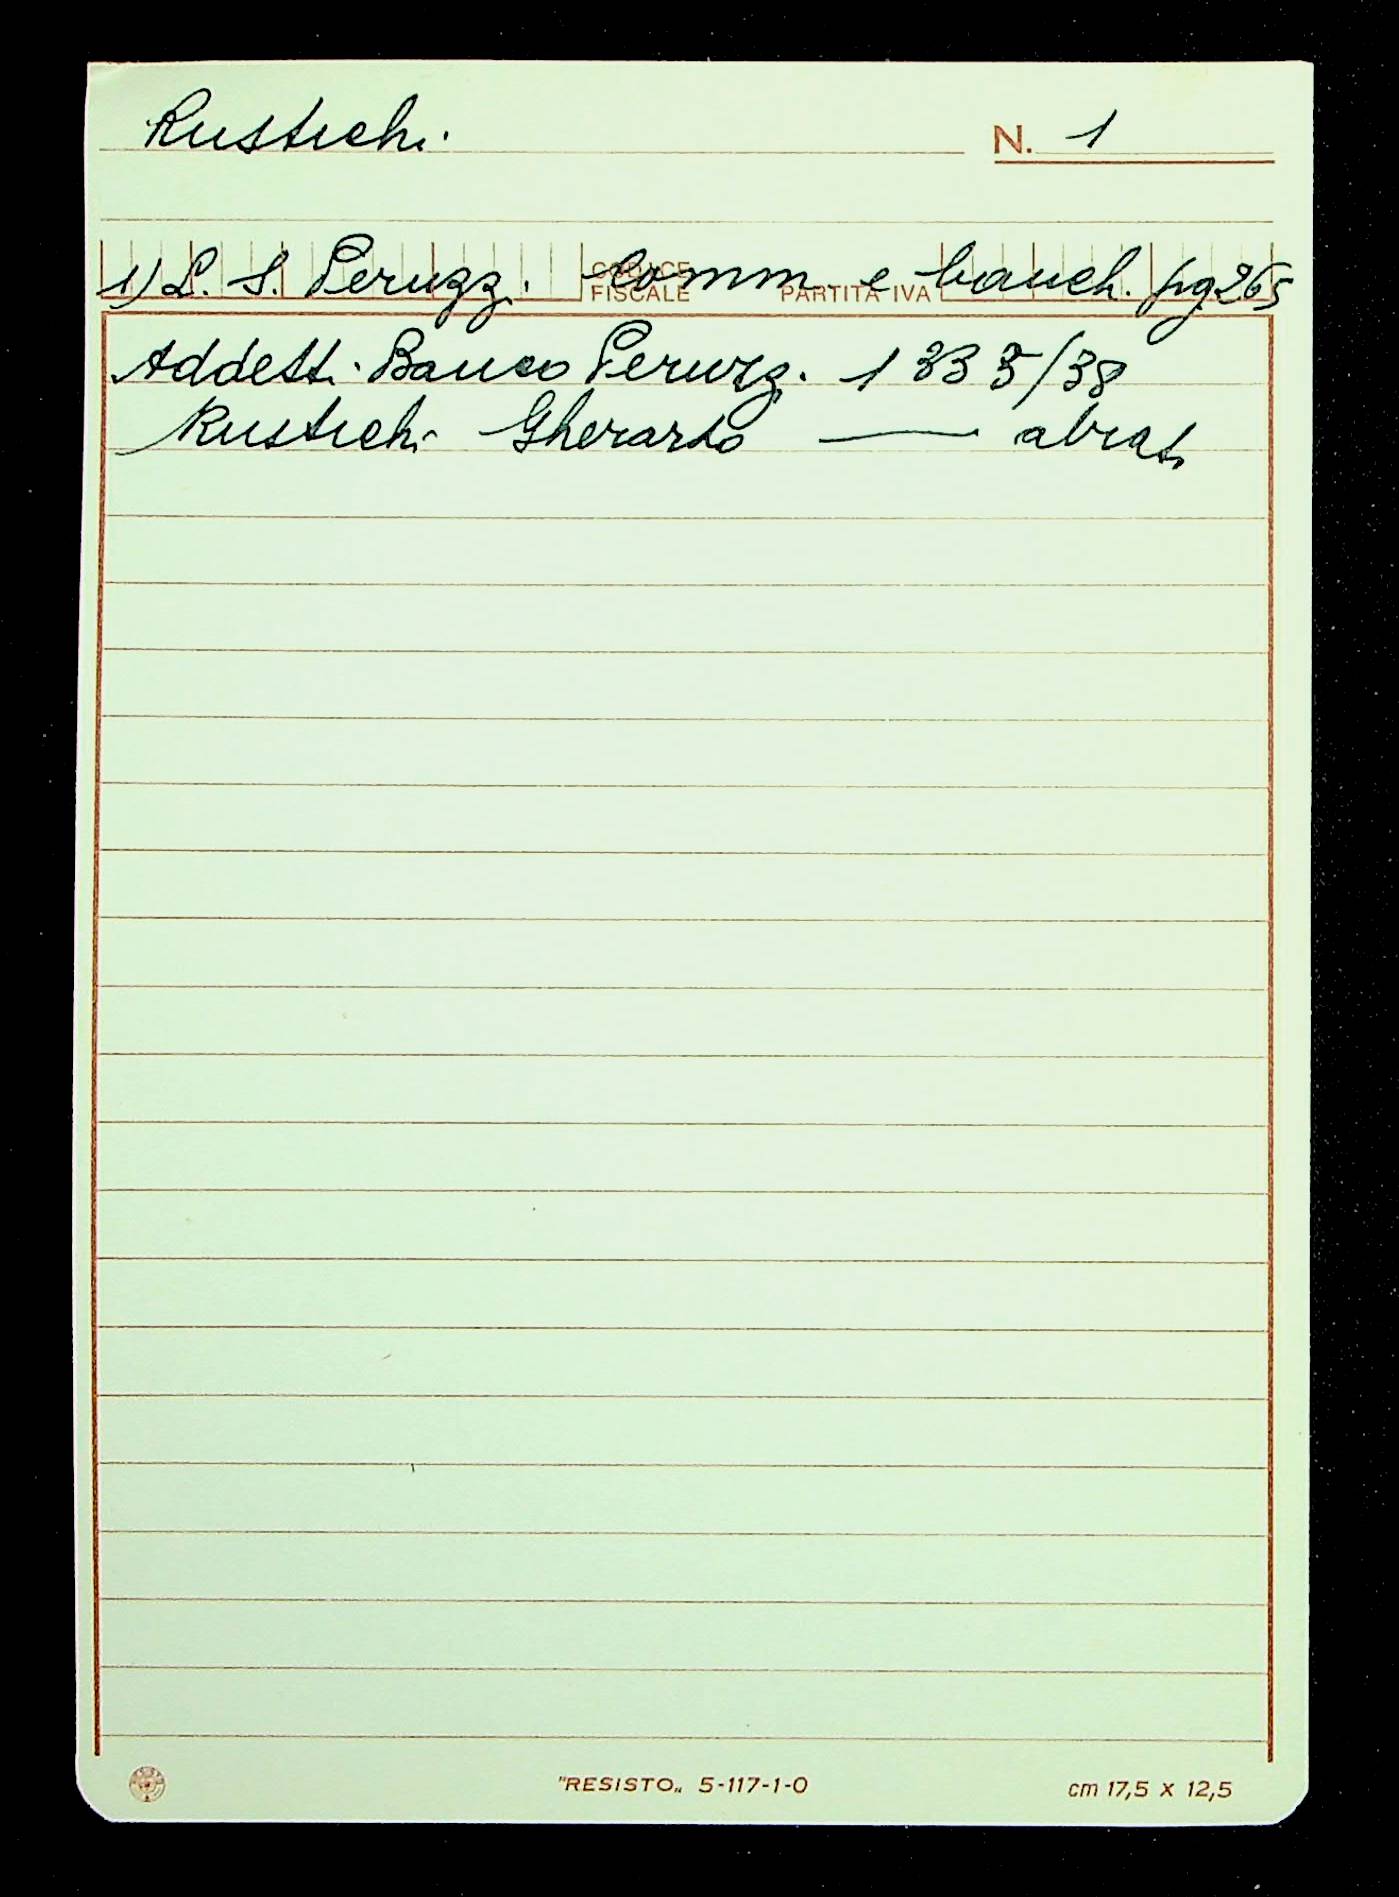 Rustichi N. 1
1) L. S. Peruzzi. Comm. e banch. pg 265
CODICE FISCALE PARTITA IVA
Addetti Banco Peruzzi 1335/38
Rustichi Gherardo —
"RESISTO„ 5-117-1-0 cm 17,5 x 12,5